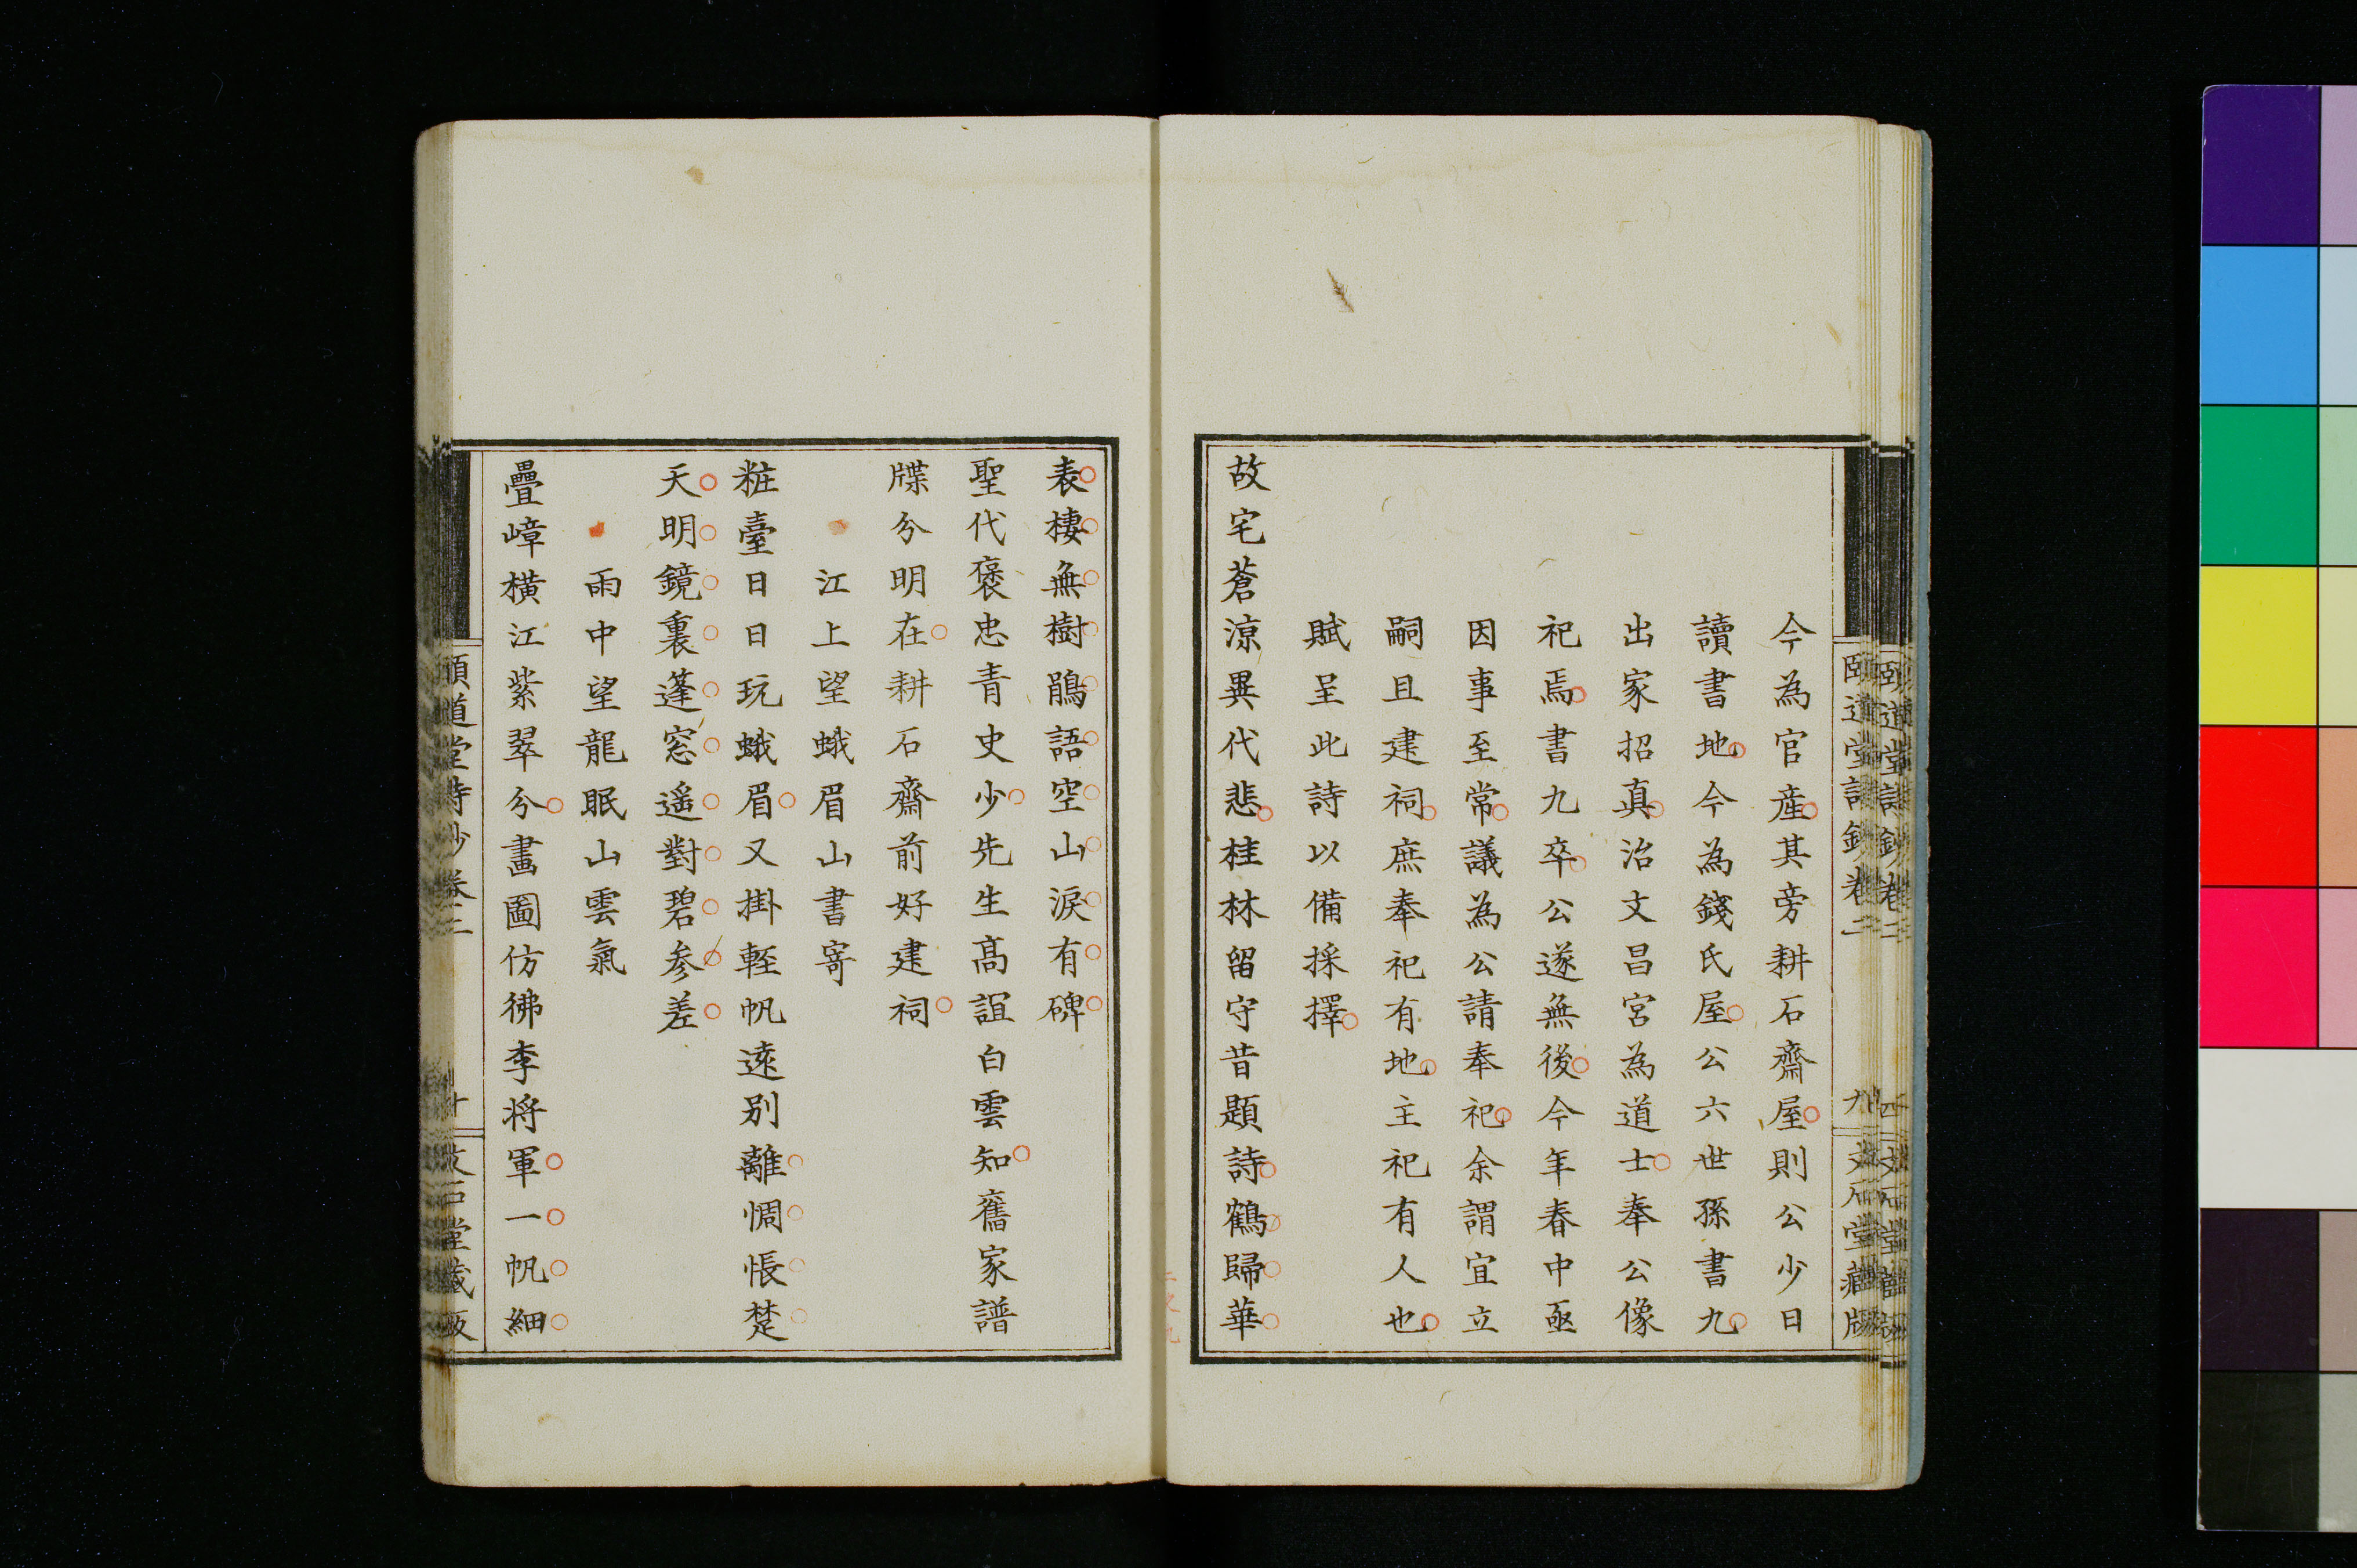 今為官產其旁耕石齋屋則公少日
讀書地今為錢氏屋公六世孫書九
出家招真治文昌宮為道士奉公像
祀焉書九卒公遂無後今年春中亟
因事至常議為公請奉祀余謂宜立
嗣且建祠庶奉祀有地主祀有人也
賦呈此詩以備採擇
故宅蒼涼異代悲桂林留守昔題詩鶴歸華
表棲無樹鵑語空山淚有碑
聖代褒忠青史少先生高誼白雲知舊家譜
牒分明在耕石齋前好建祠
江上望蛾眉山書寄
粧臺日日玩蛾眉又掛輕帆遠別離惆悵楚
天明鏡裏蓬窓遥對碧參差
雨中望龍眠山雲氣
疊嶂橫江紫翠分畫圖仿彿李将軍一帆細
頤道堂詩鈔卷二
十